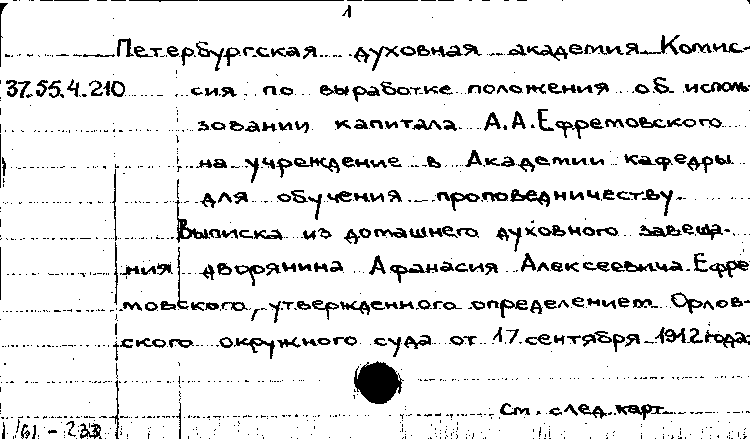 1
Петербургская духовная академия. Комис-
37.55.4.210 сия по выработке положения об исполь-
зовании капитала А.А.Ефремовского
на учреждение в Академии кафедры
для обучения проповедничеству.
Выписка из домашнего духовного завеща-
ния дворянина Афанасия Алексеевича Ефре-
мовского, утвержденного определением Орлов-
ского окружного суда от 17 сентября 1912 года.
См. след. карт.
161 - 233